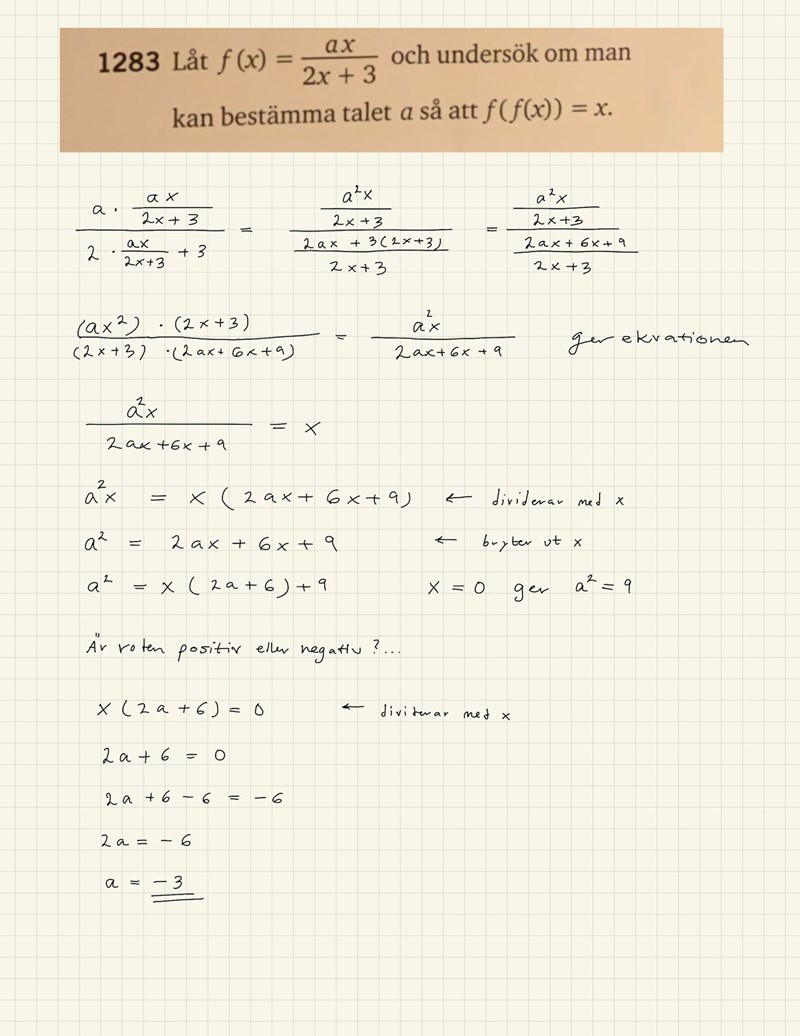 1283 Låt f(x) = ax / (2x + 3) och undersök om man
kan bestämma talet a så att f(f(x)) = x.
(a · (ax / (2x+3))) / (2 · (ax / (2x+3)) + 3) = (a²x / (2x+3)) / ((2ax + 3(2x+3)) / (2x+3)) = (a²x / (2x+3)) / ((2ax + 6x + 9) / (2x+3))
((ax²) · (2x+3)) / ((2x+3) · (2ax + 6x + 9)) = a²x / (2ax + 6x + 9) ger ekvationen
a²x / (2ax + 6x + 9) = x
a²x = x (2ax + 6x + 9) ← dividerar med x
a² = 2ax + 6x + 9 ← bryter ut x
a² = x (2a + 6) + 9 x = 0 ger a² = 9
Är roten positiv eller negativ?...
x (2a + 6) = 0 ← dividerar med x
2a + 6 = 0
2a + 6 - 6 = -6
2a = -6
a = -3